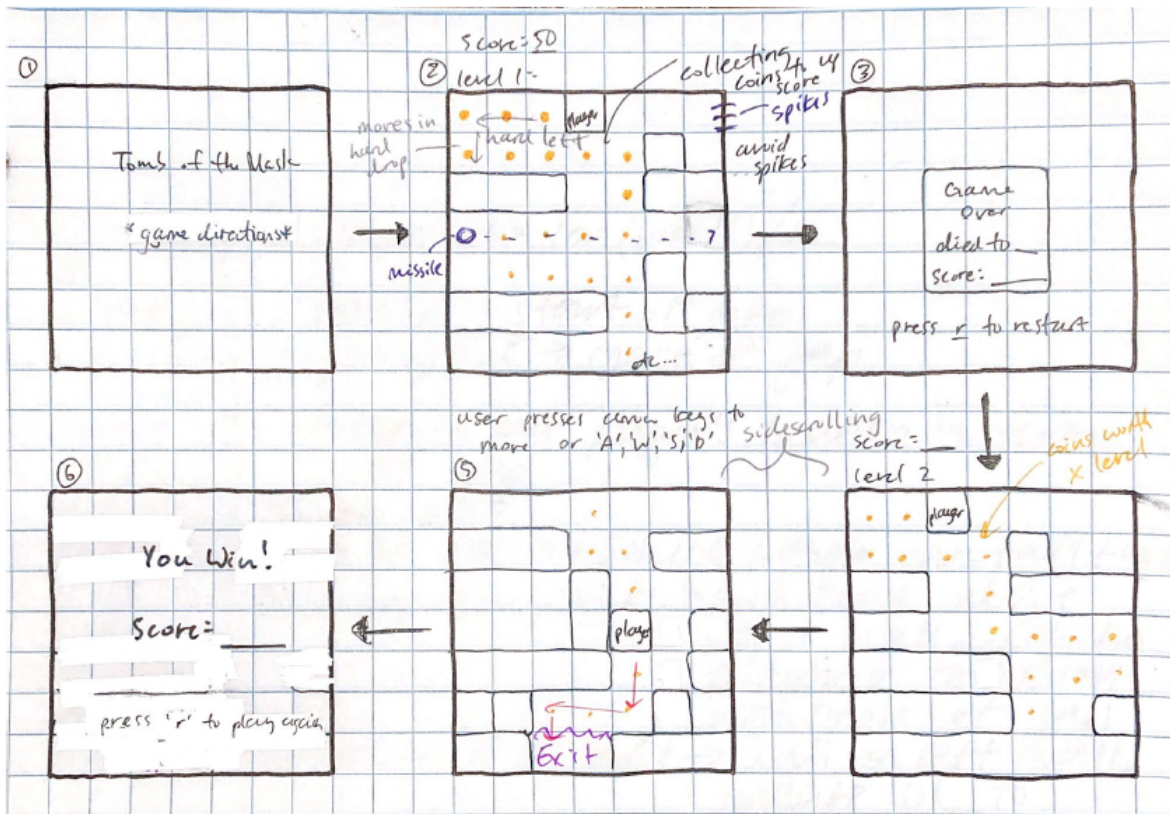 ①
Tomb of the Mask
*game directions*
score=50
②
level 1-
player
hard left
moves in
hard
drop
missile
?
etc...
collecting
coins to up
score
spikes
avoid
spikes
③
Game
Over
died to __
score: ____
press r to restart
user presses arrow keys to
move or 'A','W','S','D'
sidescrolling
score= __
level 2
coins worth
x level
player
⑤
player
Exit
⑥
You Win!
Score= ____
press 'r' to play again